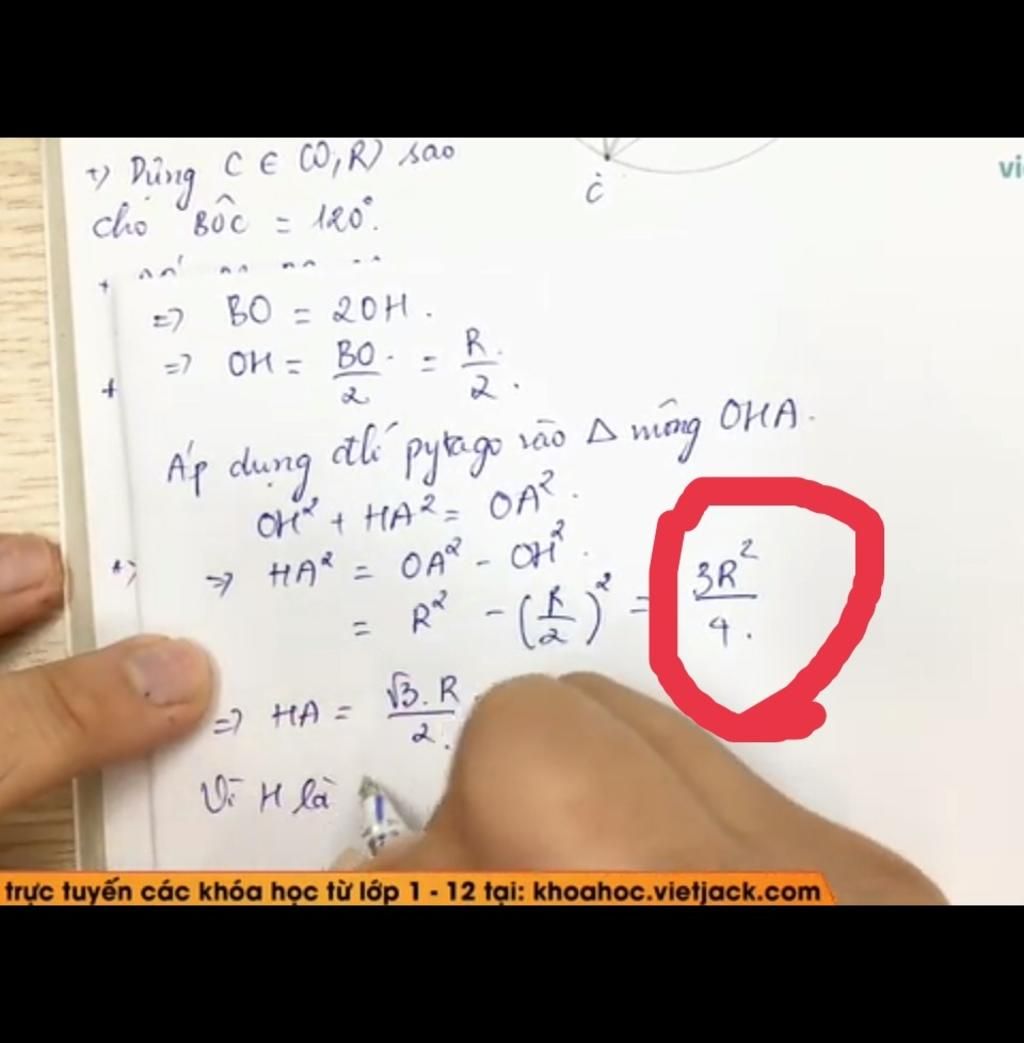 +) Dựng C ∈ (O,R) sao
cho BÔC = 120°.
C
=> BO = 2OH.
=> OH = BO/2 = R/2.
Áp dụng đlí pytago vào Δ vuông OHA.
OH² + HA² = OA².
=> HA² = OA² - OH².
= R² - (R/2)² = 3R²/4.
=> HA = √3.R/2.
Vì H là
trực tuyến các khóa học từ lớp 1 - 12 tại: khoahoc.vietjack.com